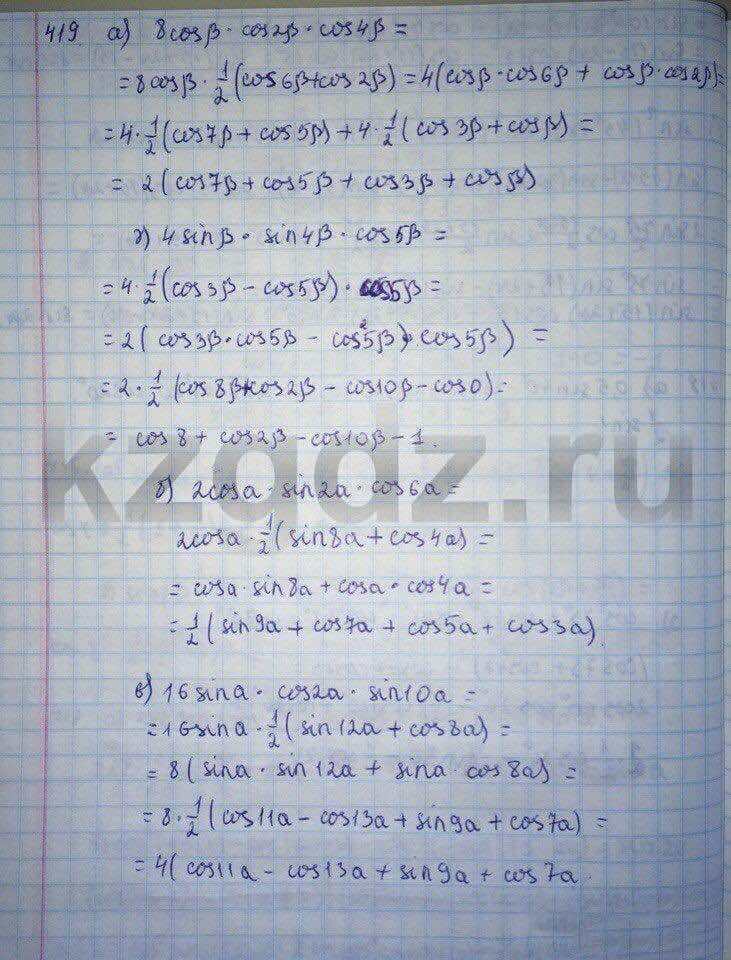 419 а) 8cosβ · cos2β · cos4β =
= 8cosβ · 1/2 (cos6β + cos2β) = 4(cosβ · cos6β + cosβ · cos2β) =
= 4 · 1/2 (cos7β + cos5β) + 4 · 1/2 (cos3β + cosβ) =
= 2 (cos7β + cos5β + cos3β + cosβ)
г) 4 sinβ · sin4β · cos5β =
= 4 · 1/2 (cos3β − cos5β) · cos5β =
= 2 ( cos3β · cos5β − cos5β · cos5β) =
= 2 · 1/2 (cos8β + cos2β − cos10β − cos0) =
= cos8 + cos2β − cos10β − 1.
kzgdz.ru
б) 2cosa · sin2a · cos6a =
2cosa · 1/2 ( sin8a + cos4a) =
= cosa · sin8a + cosa · cos4a =
= 1/2 ( sin9a + cos7a + cos5a + cos3a)
в) 16sina · cos2a · sin10a =
= 16sina · 1/2 ( sin12a + cos8a) =
= 8 ( sina · sin12a + sina · cos8a) =
= 8 · 1/2 ( cos11a − cos13a + sin9a + cos7a) =
= 4( cos11a − cos13a + sin9a + cos7a.